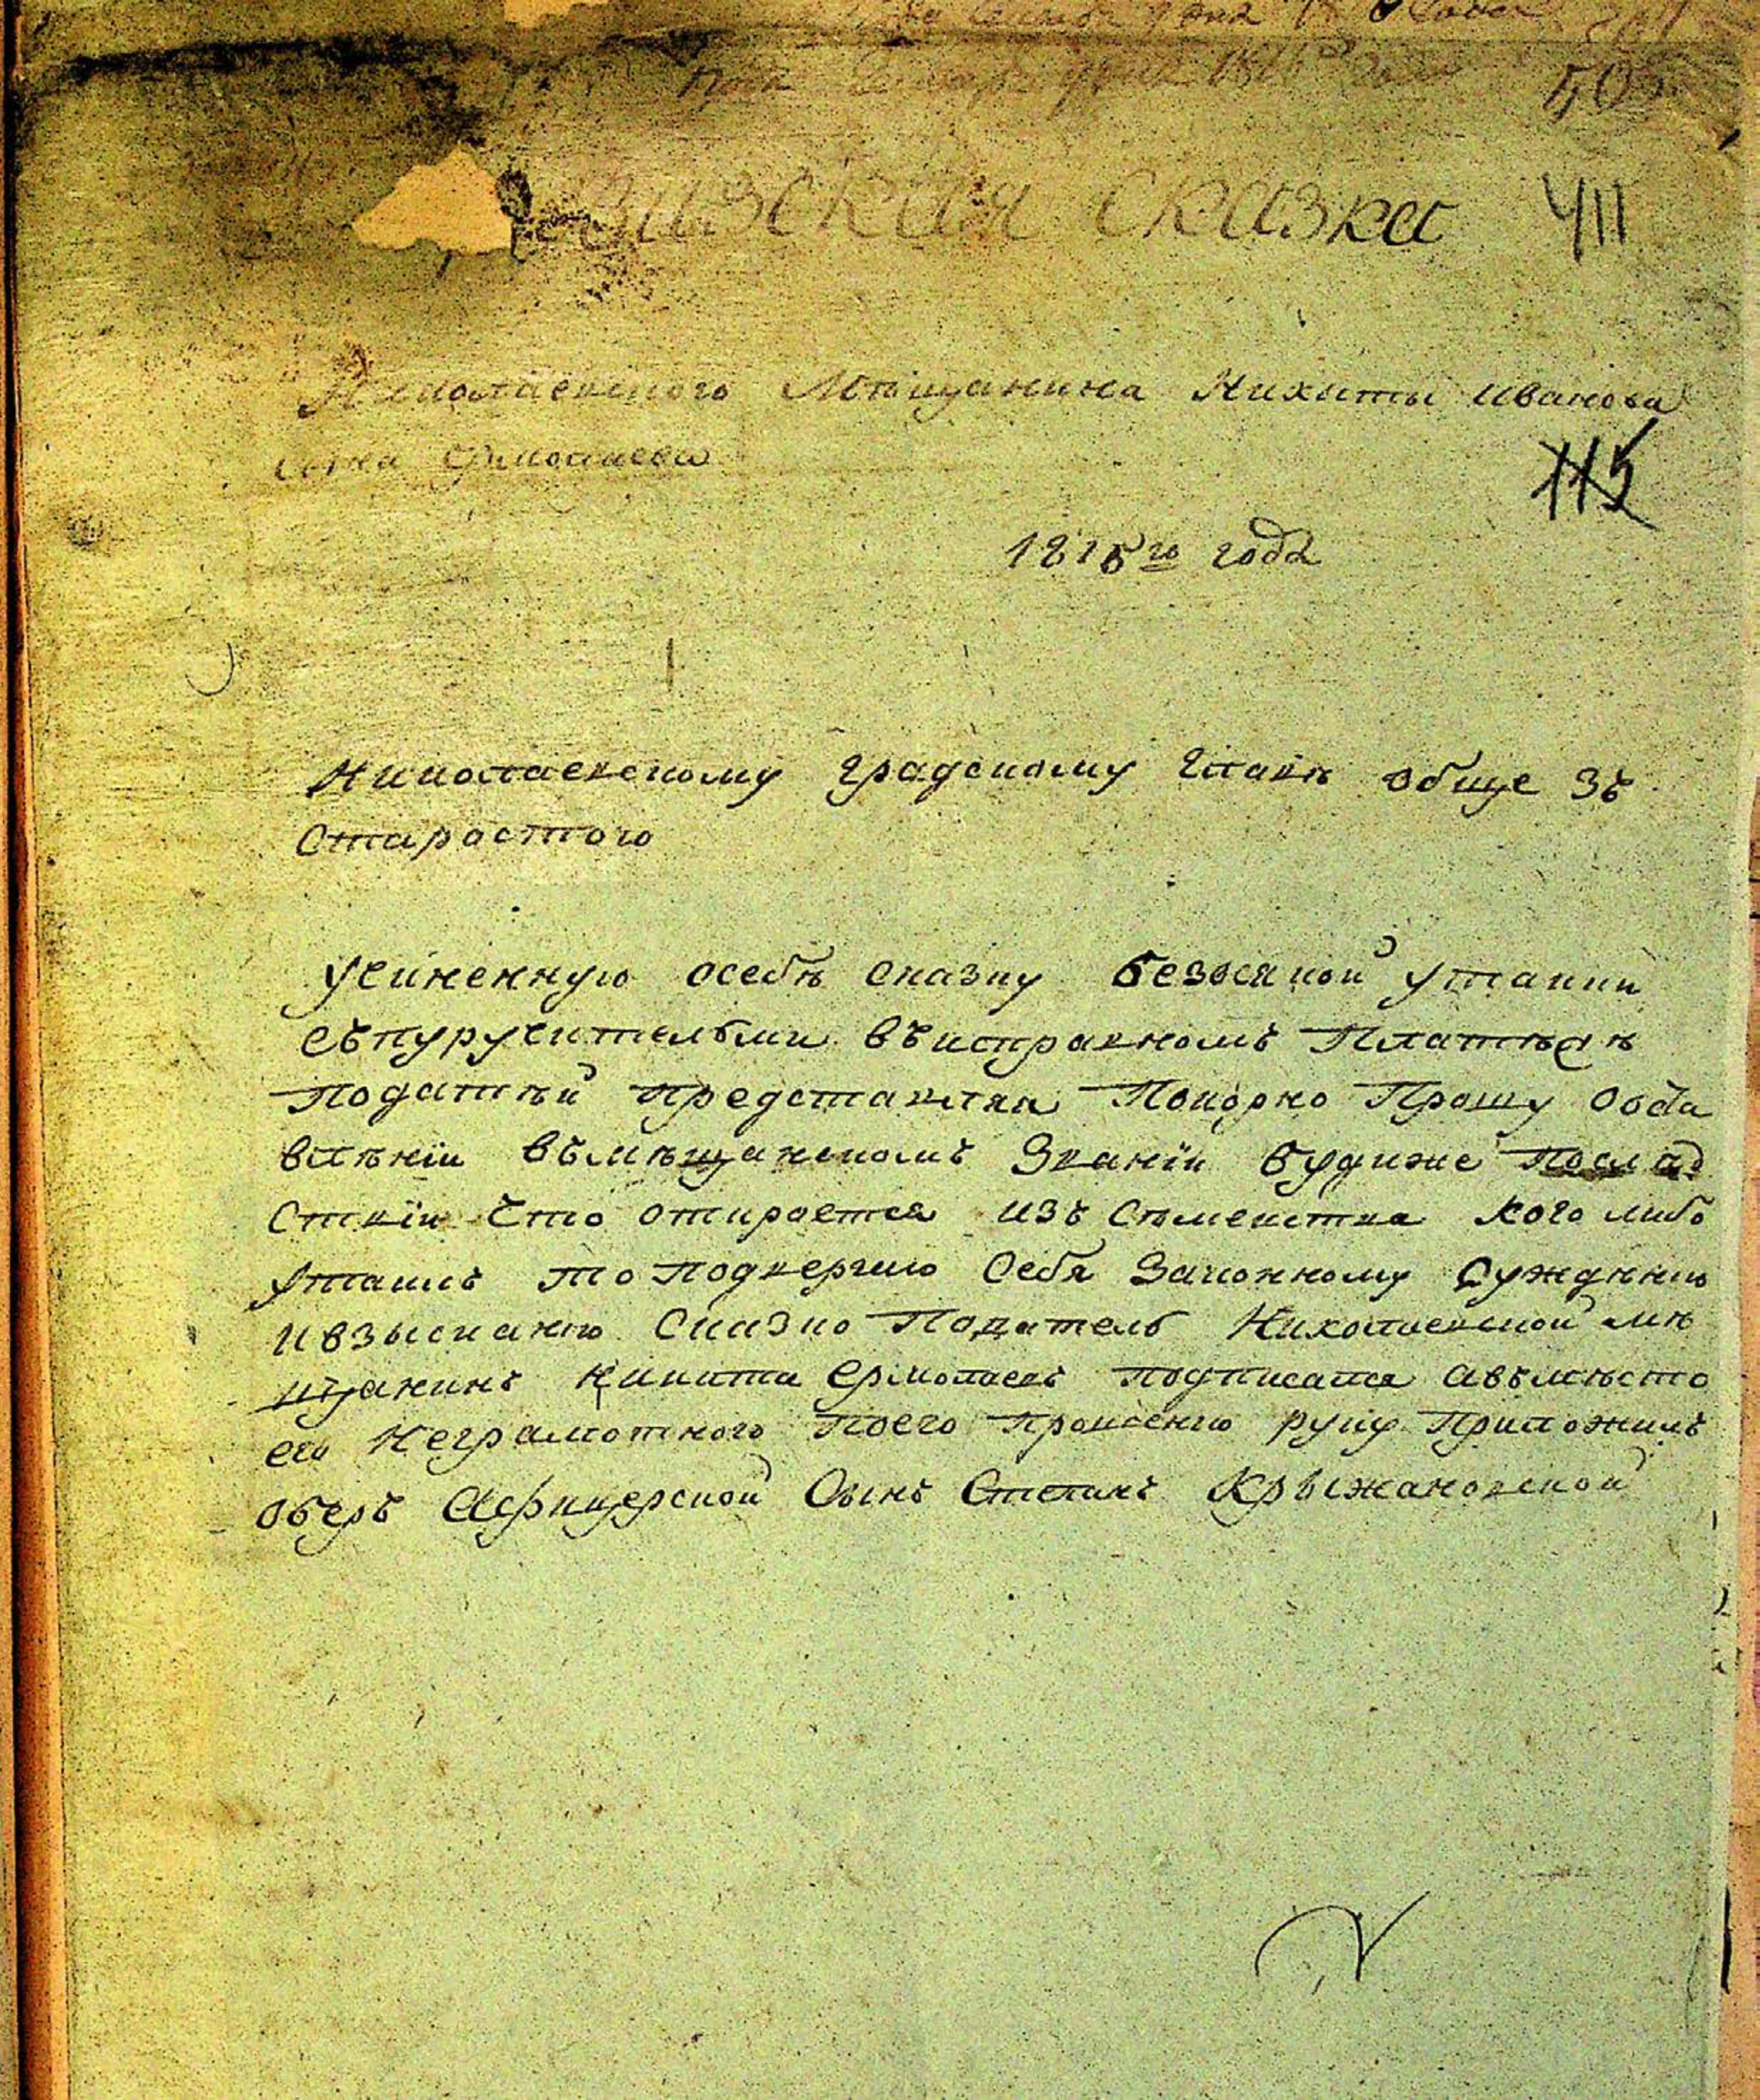 505
визская сказка 411
Николаевского Мѣщанина Никиты Иванова
сына Ермолаева
115
1816го года
Николаевскому градскому Главѣ обще зъ
Старостою
Учиненную осебѣ сказку безвсякой утайки
съпуручителями въисправномъ Платѣжѣ
Податѣй представляя Покорно Прошу Ооста
влѣніи въмѣщанскомъ Званіи будиже Послѣд
Ствіи Что откроется изъ Сѣмейства кого либо
утаилъ то подвергаю Себя Законному Суждѣнию
ивзысканю Сказко Податель Николаевской мѣ
щанинъ Никита Ермолаевъ подписался авъмѣсто
его Неграмотного поего прошению руку Приложилъ
оберъ Афицерской Сынъ Степанъ Крыжановской